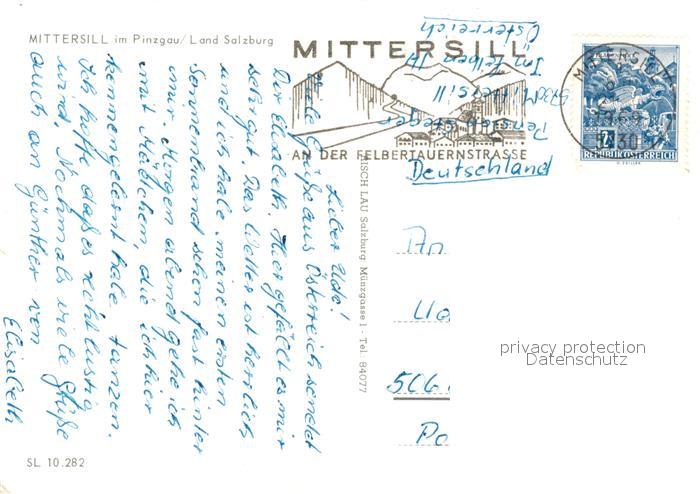 MITTERSILL im Pinzgau/Land Salzburg
MITTERSILL
AN DER FELBERTAUERNSTRASSE
MITTERSILL
REPUBLIK ÖSTERREICH
Österreich
Im Felben
5730 Mittersill
Pension
Deutschland
Lieber Udo!
Viele Grüße aus Österreich sendet
Dir Elisabeth. Hier gefällt es mir
sehr gut. Das Wetter ist herrlich
und ich habe meinen ersten
Sonnenbrand schon fast hinter
mir. Morgen abend gehe ich
mit Mädchen, die ich hier
kennengelernt habe, tanzen.
Ich hoffe daß es recht lustig
wird. Nochmals viele Grüße
auch an Günther von
Elisabeth
LAU Salzburg Münzgasse 1 · Tel. 84077
An
506
privacy protection
Datenschutz
SL 10.282